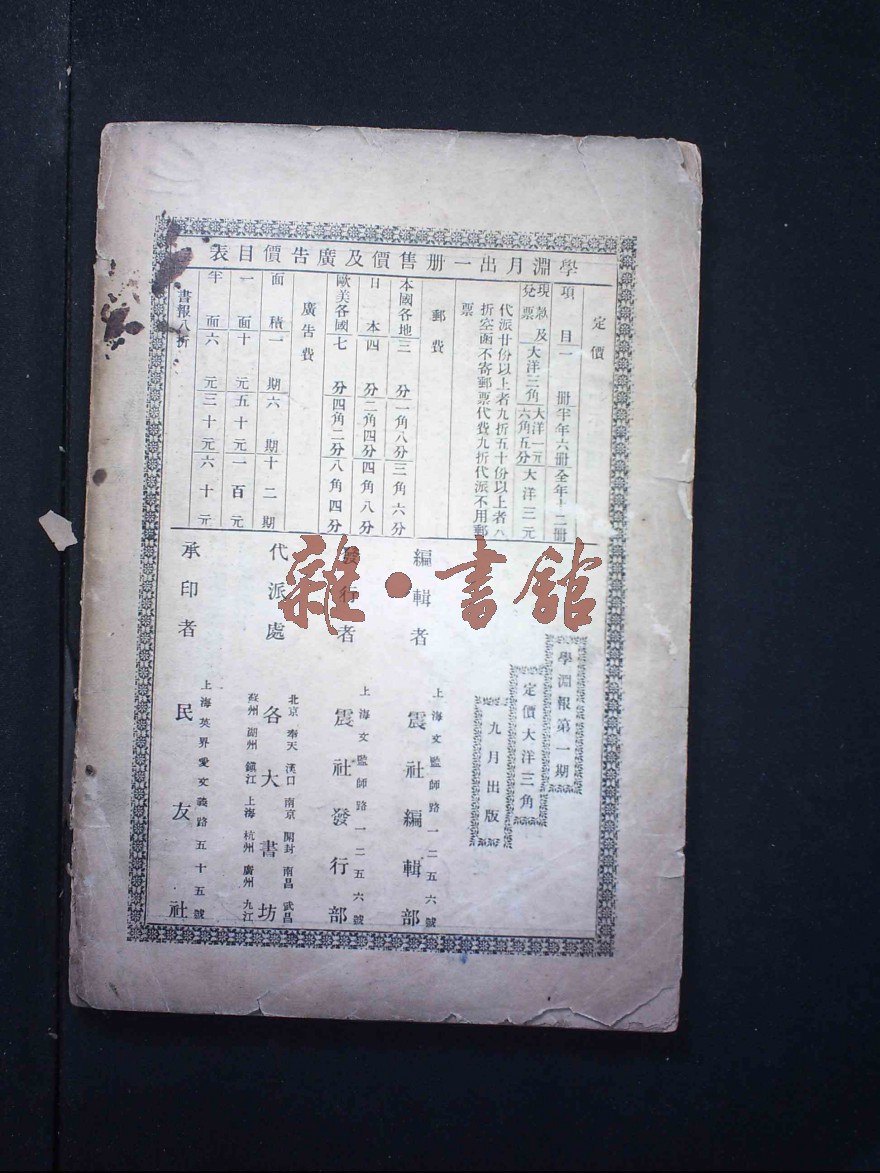 學淵月出一册售價及廣告價目表
定價
項目 一册 半年六册 全年十二册
現款及兌票 大洋三角 大洋一元六角五分 大洋三元
代派廿份以上者九折五十份以上者八
折空函不寄郵票代費九折代派不用郵
票
郵費
本國各地 三分 一角八分 三角六分
日本 四分 二角四分 四角八分
歐美各國 七分 四角二分 八角四分
廣告費
面積 一期 六期 十二期
一面 十元 五十元 一百元
半面 六元 三十元 六十元
書報八折
學淵報第一期
定價大洋三角
九月出版
編輯者
上海文監師路一二五六號
震社編輯部
發行者
上海文監師路一二五六號
震社發行部
代派處
北京 奉天 漢口 南京 開封 南昌 武昌
各大書坊
蘇州 湖州 鎮江 上海 杭州 廣州 九江
承印者
上海英界愛文義路五十五號
民友社
雜·書館